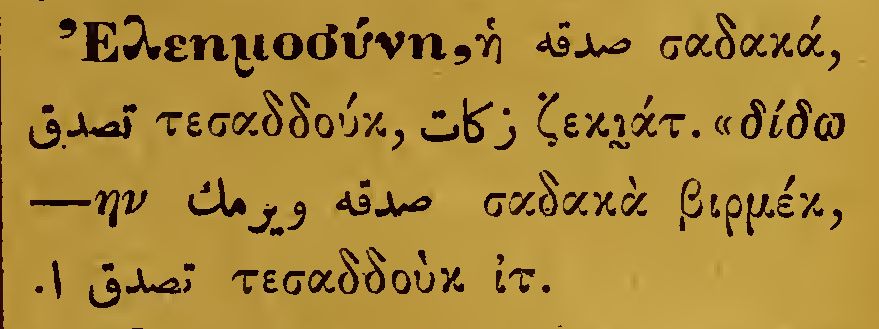 Ἐλεημοσύνη, ἡ صدقه σαδακά,
تصدق τεσαδδούκ, زكات ζεκι̰άτ. «δίδω
—ην صدقه ويرمك σαδακὰ βιρμέκ,
تصدق ا. τεσαδδοὺκ ἰτ.